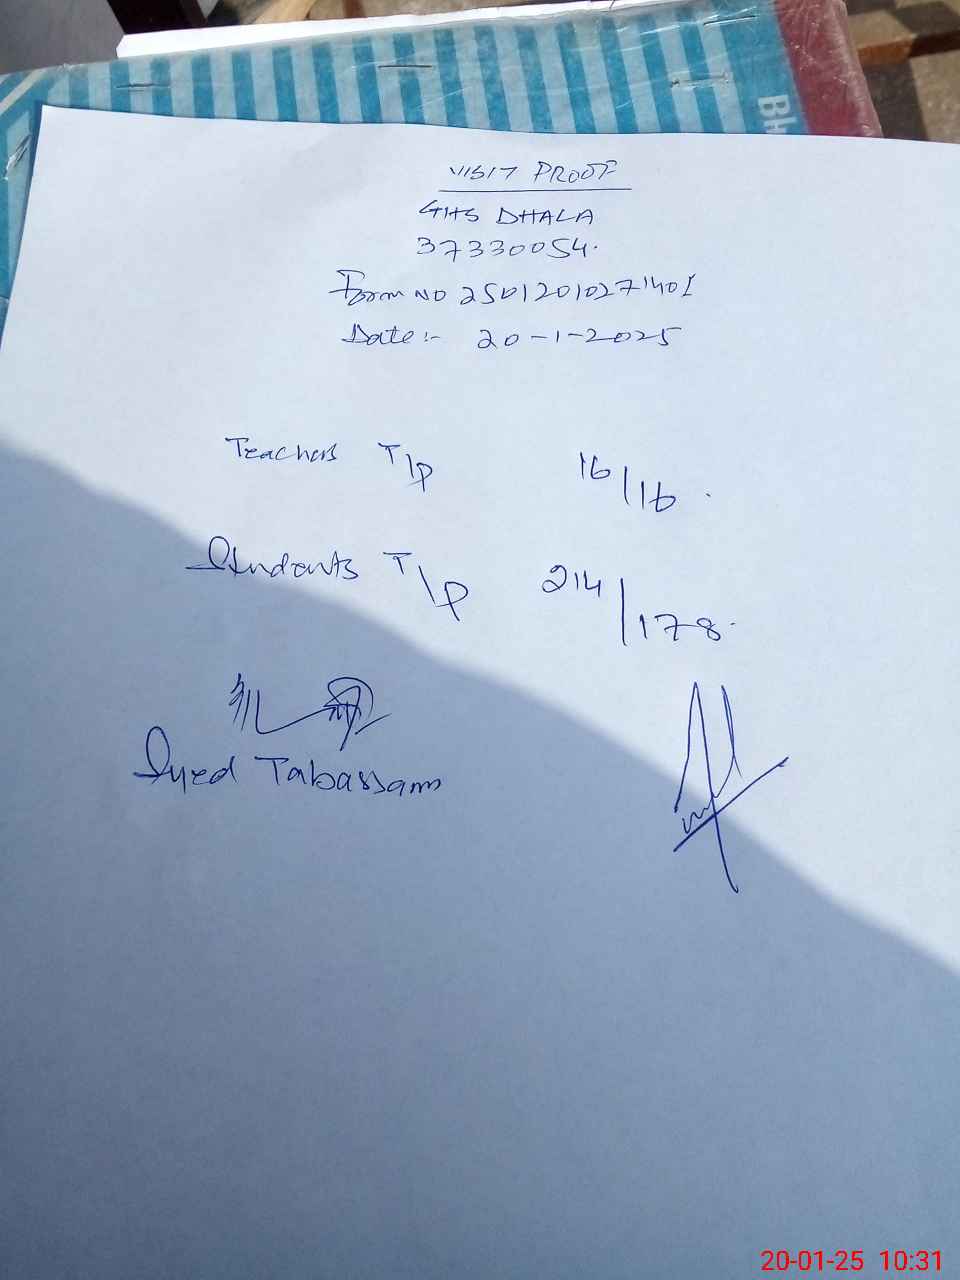 BH
VISIT PROOF
GHS DHALA
37330054.
Form NO 25012010271401
Date:- 20-1-2025
Teachers T/P 16/16.
Students T\P 214/178.
Syed Tabassam
20-01-25 10:31